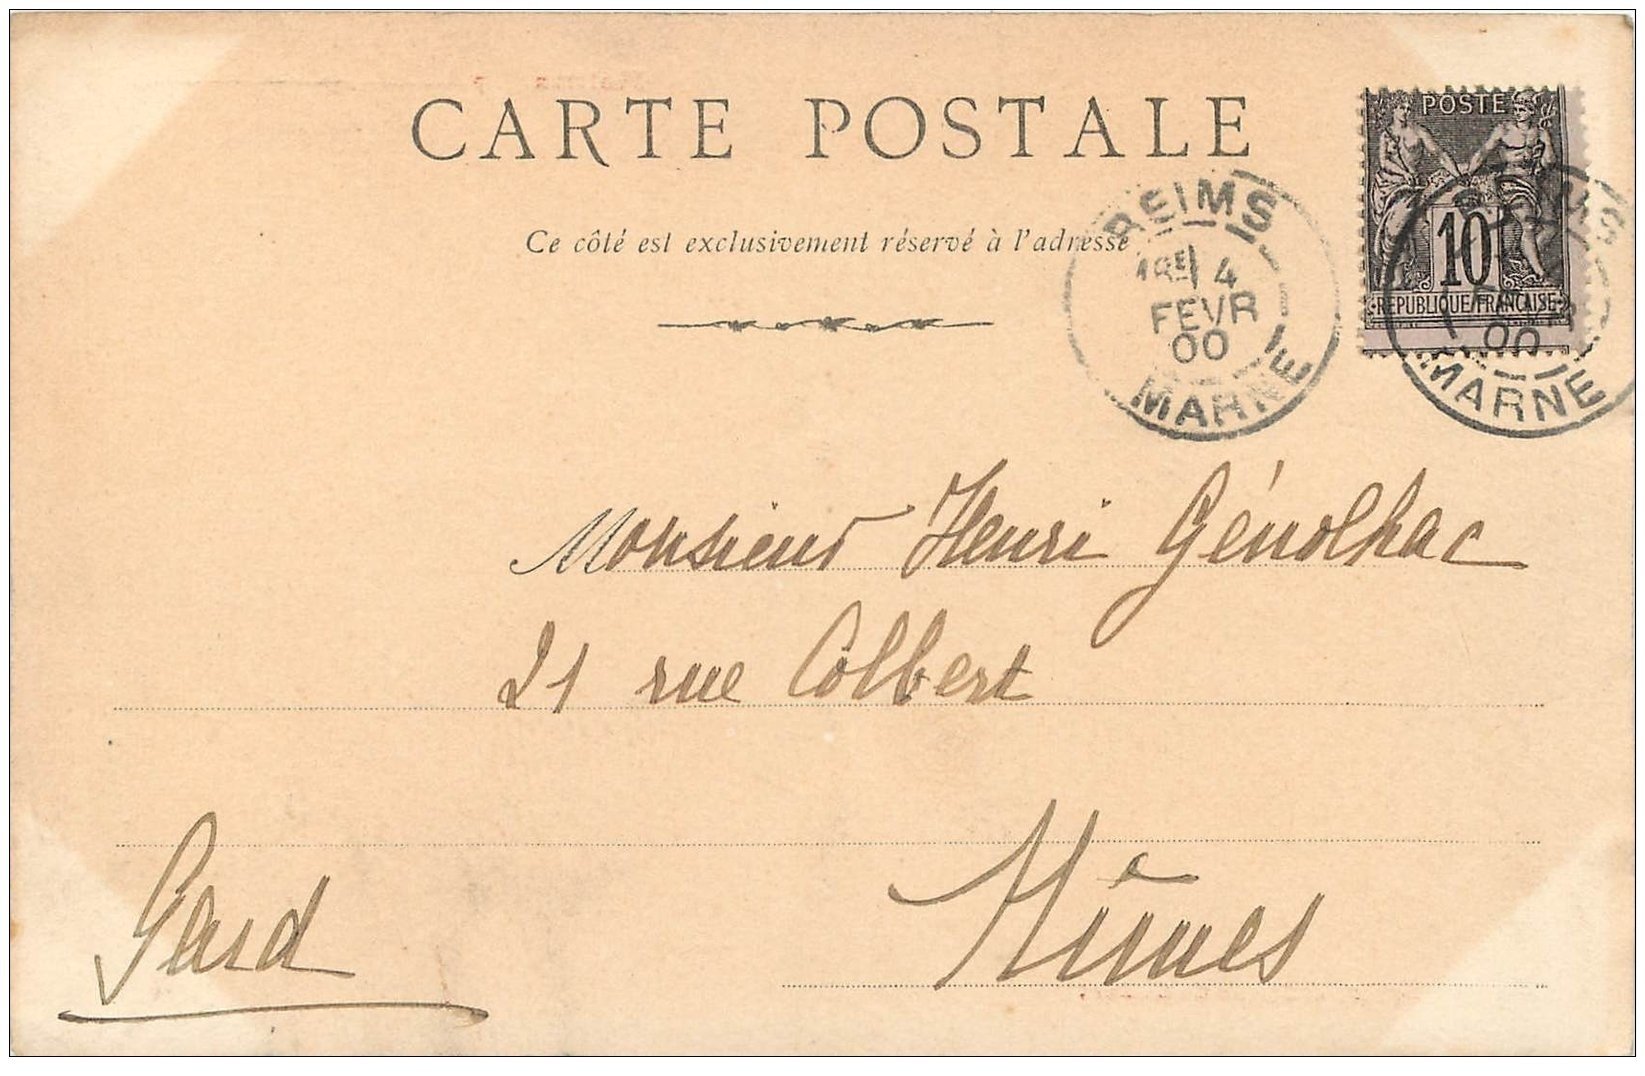 CARTE POSTALE
Ce côté est exclusivement réservé à l'adresse
POSTE
10
REPUBLIQUE FRANCAISE
REIMS
1RE 4
FEVR
00
MARNE
00
MARNE
Monsieur Henri Génolhac
21 rue Colbert
Nîmes
Gard